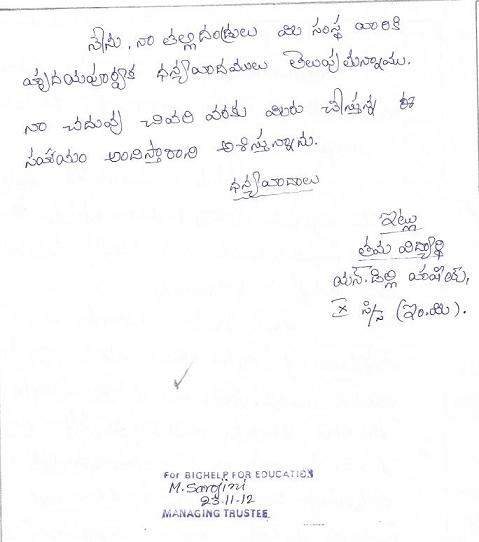 నేను, నా తల్లిదండ్రులు మీ సంస్థ వారికి
హృదయపూర్వక ధన్యవాదములు తెలుపుతున్నాము.
నా చదువు చివరి వరకు మీరు చేస్తున్న ఈ
సహాయం అందిస్తారాని ఆశిస్తున్నాను.
ధన్యవాదాలు
ఇట్లు
తమ విద్యార్థి
యస్. ఢిల్లీ
X (ఇం.మీ).
For BIGHELP FOR EDUCATION
M. Sarojini
23-11-12
MANAGING TRUSTEE